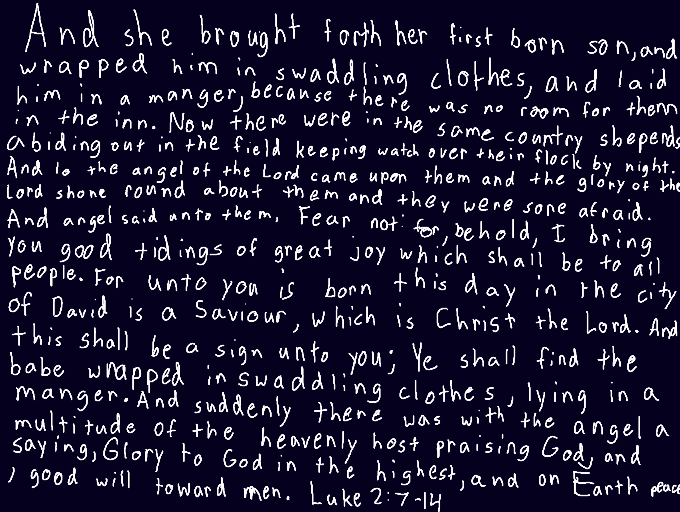 And she brought forth her first born son, and
wrapped him in swaddling clothes, and laid
him in a manger, because there was no room for them
in the inn. Now there were in the same country sheperds
abiding out in the field keeping watch over their flock by night.
And lo the angel of the Lord came upon them and the glory of the
Lord shone round about them and they were sore afraid.
And angel said unto them, Fear not: for, behold, I bring
you good tidings of great joy which shall be to all
people. For unto you is born this day in the city
of David is a Saviour, which is Christ the Lord. And
this shall be a sign unto you; Ye shall find the
babe wrapped in swaddling clothes, lying in a
manger. And suddenly there was with the angel a
multitude of the heavenly host praising God, and
saying, Glory to God in the highest, and on Earth peace
, good will toward men. Luke 2:7-14